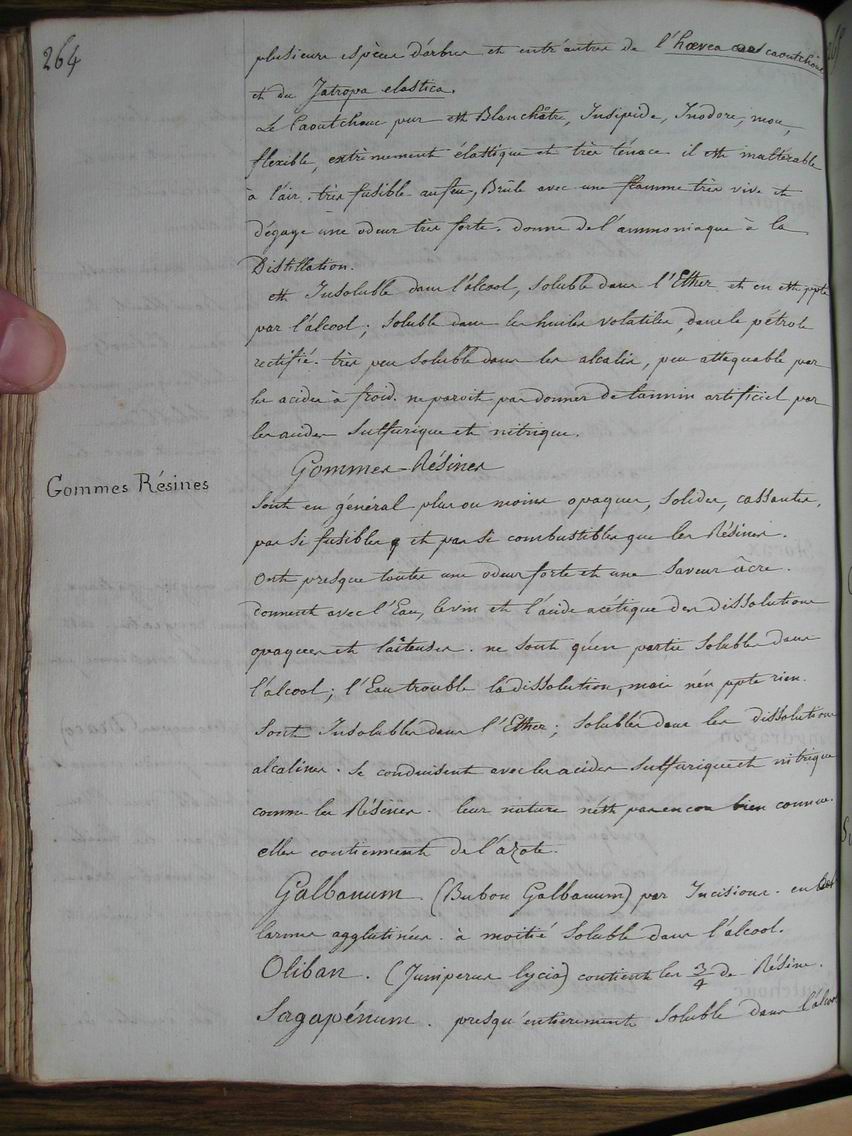 264
plusieurs espèces d'arbres et entr'autres de l'hœvea caoutchouc
et du Jatropa elastica.
Le Caoutchouc pur est Blanchâtre, Insipide, Inodore, mou,
flexible, extrêmement élastique et très ténace. il est inaltérable
à l'air. très fusible au feu, Brûle avec une flamme très vive et
dégage une odeur très forte. donne de l'ammoniaque à la
Distillation.
est Insoluble dans l'alcool, soluble dans l'Ether et en est ppté
par l'alcool; soluble dans les huiles volatiles, dans le pétrole
rectifié. très peu soluble dans les alcalis, peu attaquable par
les acides à froid. ne paroit pas donner de tannin artificiel par
les acides sulfurique et nitrique.
Gommes-Résines
Gommes Résines
sont en général plus ou moins opaques, solides, cassantes,
pas si fusibles et pas si combustibles que les Résines.
ont presque toutes une odeur forte et une saveur âcre.
donnent avec l'Eau, le vin et l'acide acétique des dissolutions
opaques et laiteuses. ne sont qu'en partie solubles dans
l'alcool; l'Eau trouble la dissolution, mais n'en ppte rien.
sont Insolubles dans l'Ether; solubles dans les dissolutions
alcalines. se conduisent avec les acides sulfurique et nitrique
comme les Résines. leur nature n'est pas encore bien connue.
elles contiennent de l'azote.
Galbanum (Bubon Galbanum) par Incisions. en
larmes agglutinées. à moitié soluble dans l'alcool.
Oliban. (Juniperus lycia) contient les 3/4 de Résine.
Sagapénum. presqu'entierement soluble dans l'alcool